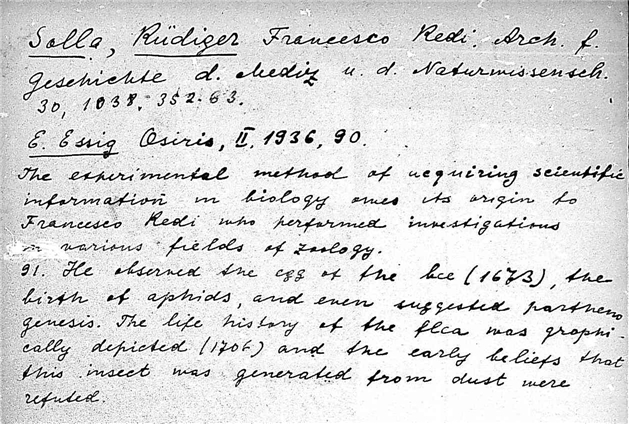 Solla, Rüdiger Francesco Redi. Arch. f.
Geschichte d. Mediz u. d. Naturwissensch.
30, 1938, 352-63.
E. Essig Osiris, II, 1936, 90.
The experimental method of acquiring scientific
information in biology owes its origin to
Francesco Redi who performed investigations
in various fields of zoology.
91. He observed the egg of the bee (1673), the
birth of aphids, and even suggested partheno
genesis. The life history of the flea was graphi-
cally depicted (1706) and the early beliefs that
this insect was generated from dust were
refuted.